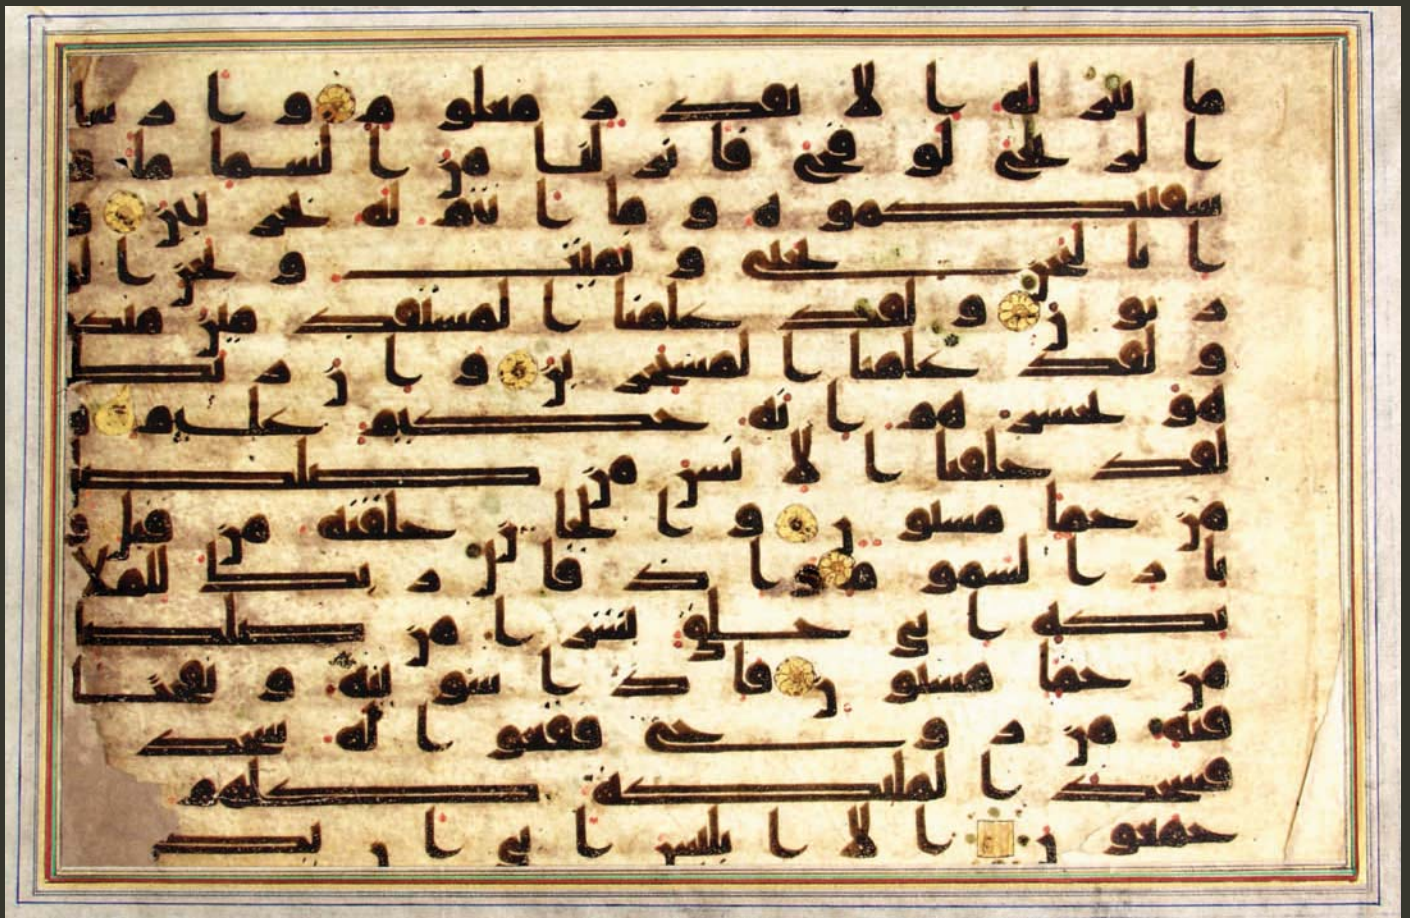 ما ننزله الا بقدر معلوم وارسلنا
الريح لوقح فانزلنا من السما ما فا
سقينكموه وما انتم له بخزنين و
انا لنحن نحي ونميت ونحن الو
رثون ولقد علمنا المستقدمين منكم
ولقد علمنا المستخرين وان ربك
هو يحشرهم انه حكيم عليم و
لقد خلقنا الانسن من صلصل
من حما مسنون والجان خلقنه من قبل من
نار السموم واذ قال ربك للمل
ئكة اني خلق بشرا من صلصل
من حما مسنون فاذا سويته ونفخت
فيه من روحي فقعوا له سجدين
فسجد الملئكة كلهم ا
جمعون الا ابليس ابى ان يكو